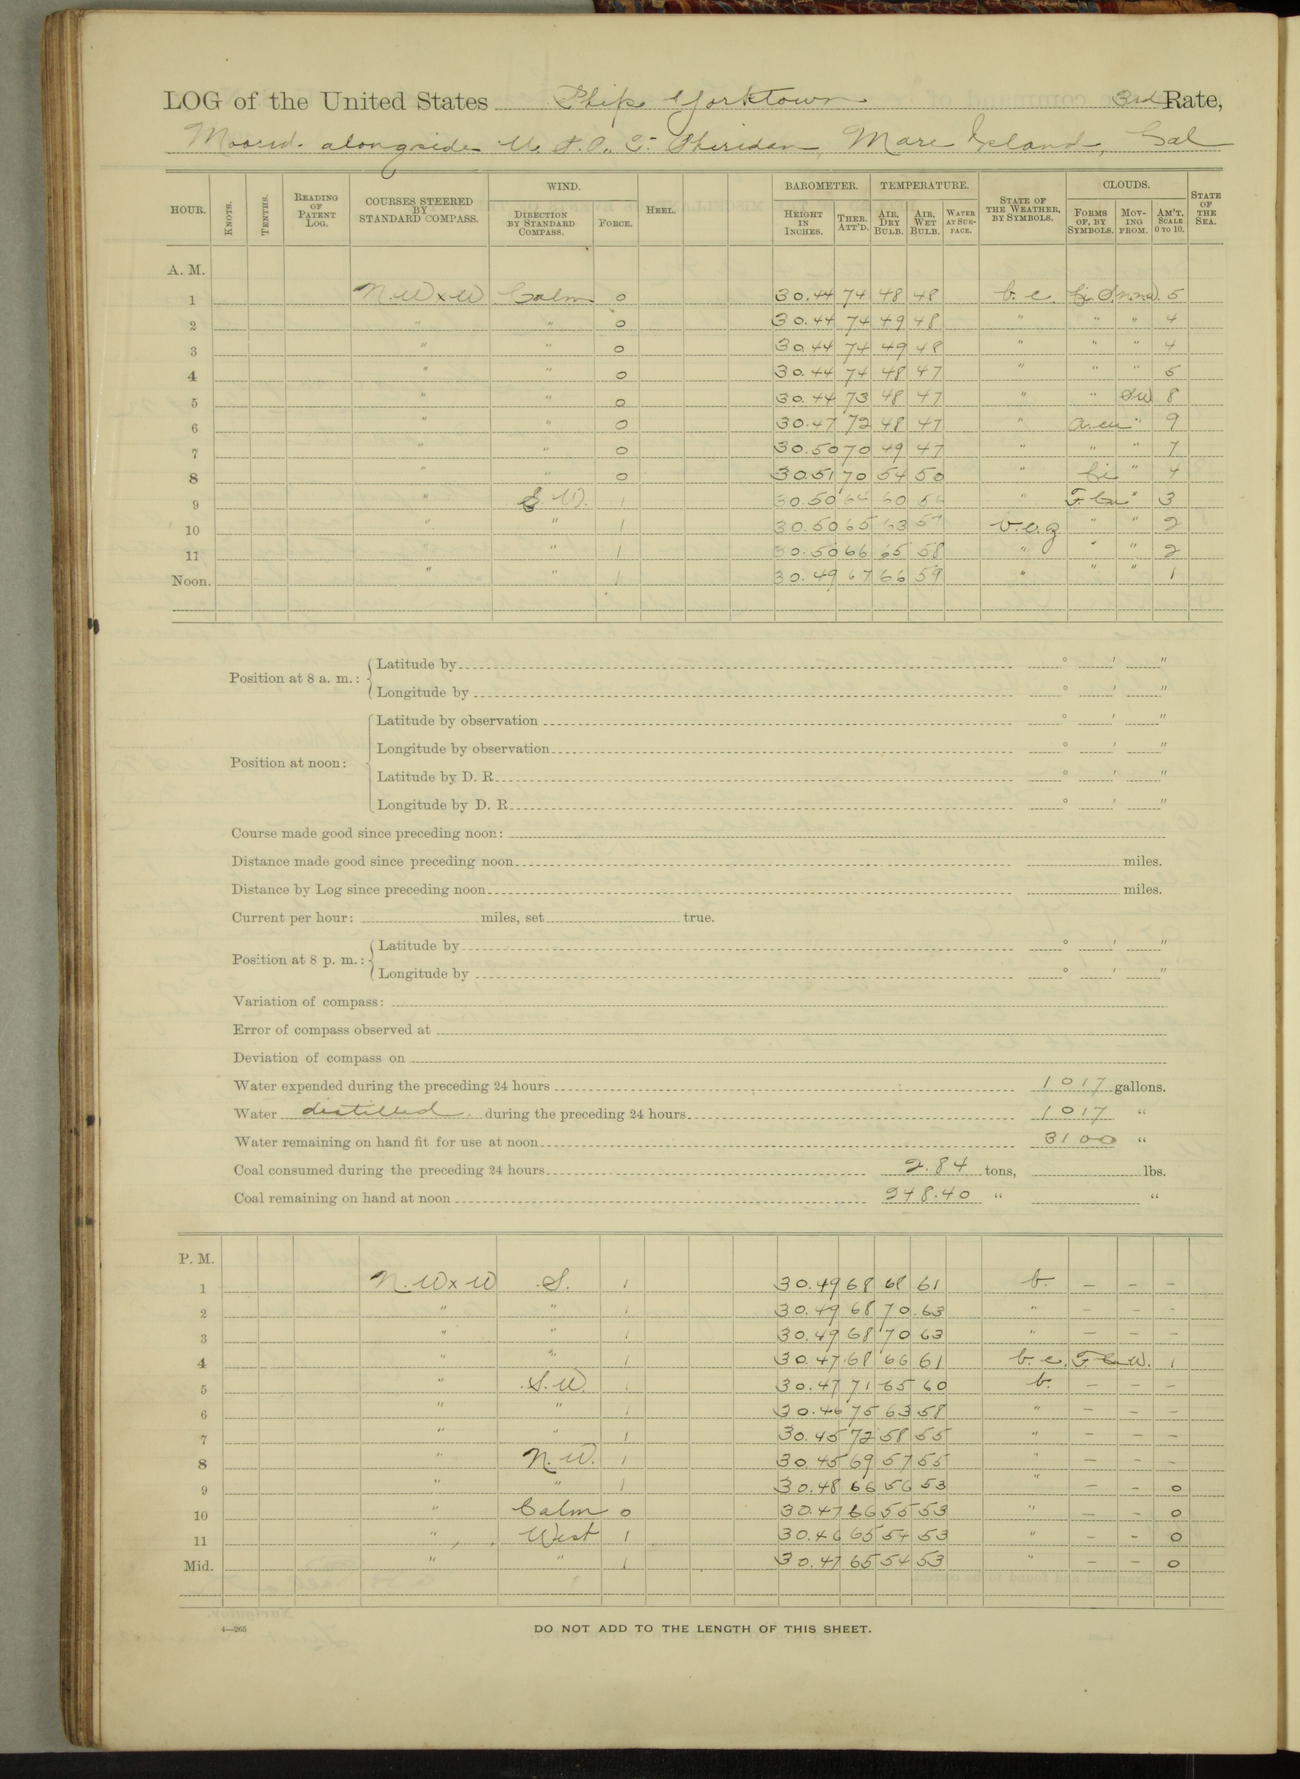 LOG of the United States Ship Yorktown 3rd Rate,
Moored alongside U. S. A. T. Sheridan, Mare Island, Cal
HOUR. KNOTS. TENTHS. READING OF PATENT LOG. COURSES STEERED BY STANDARD COMPASS. WIND. DIRECTION BY STANDARD COMPASS. FORCE. HEEL. BAROMETER. HEIGHT IN INCHES. THER. ATT'D. TEMPERATURE. AIR, DRY BULB. AIR, WET BULB. WATER AT SURFACE. STATE OF THE WEATHER, BY SYMBOLS. CLOUDS. FORMS OF, BY SYMBOLS. MOVING FROM. AM'T, SCALE 0 TO 10. STATE OF THE SEA.
A. M.
1 N.W x W Calm 0 30.44 74 48 48 b.c. 5
2 " " 0 30.44 74 49 48 " " " 4
3 " " 0 30.44 74 49 48 " " " 4
4 " " 0 30.44 74 48 47 " " " 5
5 " " 0 30.44 73 48 47 " " SW 8
6 " " 0 30.47 72 48 47 " a.cu " 9
7 " " 0 30.50 70 49 47 " " " 7
8 " " 0 30.51 70 54 50 " Ci " 4
9 " S.W. 1 30.50 64 60 56 " F.Cu " 3
10 " " 1 30.50 65 63 57 b.c.z " " 2
11 " 1 30.50 66 65 58 " " " 2
Noon. " " 1 30.49 67 66 59 " " " 1
Position at 8 a. m.: Latitude by ° ′ ″
Longitude by ° ′ ″
Position at noon: Latitude by observation ° ′ ″
Longitude by observation ° ′ ″
Latitude by D. R. ° ′ ″
Longitude by D. R. ° ′ ″
Course made good since preceding noon:
Distance made good since preceding noon miles.
Distance by Log since preceding noon miles.
Current per hour: miles, set true.
Position at 8 p. m.: Latitude by ° ′ ″
Longitude by ° ′ ″
Variation of compass:
Error of compass observed at
Deviation of compass on
Water expended during the preceding 24 hours 1017 gallons.
Water distilled during the preceding 24 hours 1017 "
Water remaining on hand fit for use at noon 3100 "
Coal consumed during the preceding 24 hours 2.84 tons, lbs.
Coal remaining on hand at noon 248.40 " "
P. M.
1 N.W x W S. 1 30.49 68 68 61 b. – – –
2 " " 1 30.49 68 70 63 " – – –
3 " " 1 30.49 68 70 63 " – – –
4 " " 1 30.47 68 66 61 b.c. F.Cu W. 1
5 " S.W. 1 30.47 71 65 60 b. – – –
6 " " 1 30.46 75 63 58 " – – –
7 " " 1 30.45 72 58 55 " – – –
8 " N.W. 1 30.45 69 57 55 " – – –
9 " " 1 30.48 66 56 53 " – – 0
10 " Calm 0 30.47 66 55 53 " – – 0
11 " West 1 30.46 65 54 53 " – – 0
Mid. " " 1 30.47 65 54 53 " – – 0
4—265
DO NOT ADD TO THE LENGTH OF THIS SHEET.